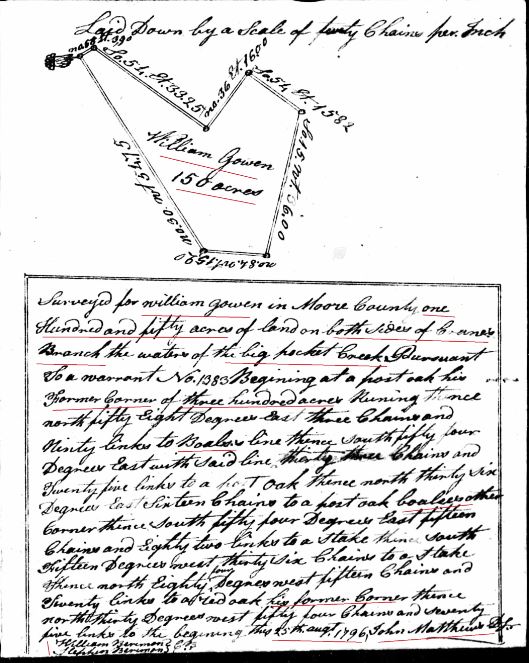 Laid Down by a Scale of forty Chains per. Inch
So. 54. Et. 3325
no. 36 Et. 1600
So. 54 Et. 1582
So. 15. Wt. 36.00
no. 30. Wt 54.75
William Gowen
150 acres
Surveyed for william gowen in Moore County one
Hundred and fifty acres of land on both sides of Cranes
Branch the waters of the big pocket Creek Pursuant
To a warrant No. 1383 Begining at a post oak his
Former Corner of three hundred acres Runing thence
north fifty Eight Degrees East three Chains and
Ninty links to line thence South fifty four
Degrees East with said line thirty three Chains and
Twenty five links to a post Oak thence north thirty six
Degrees East Sixteen Chains to a post oak other
Corner thence South fifty four Degrees East fifteen
Chains and Eighty two links to a Stake thence South
Fifteen Degrees west thirty six Chains to a Stake
Thence north Eighty Degrees west fifteen Chains and
Twenty links to a Red oak his former Corner thence
north thirty Degrees west fifty four Chains and seventy
five links to the begining this 25th augt. 1796, John Matthews D.S.